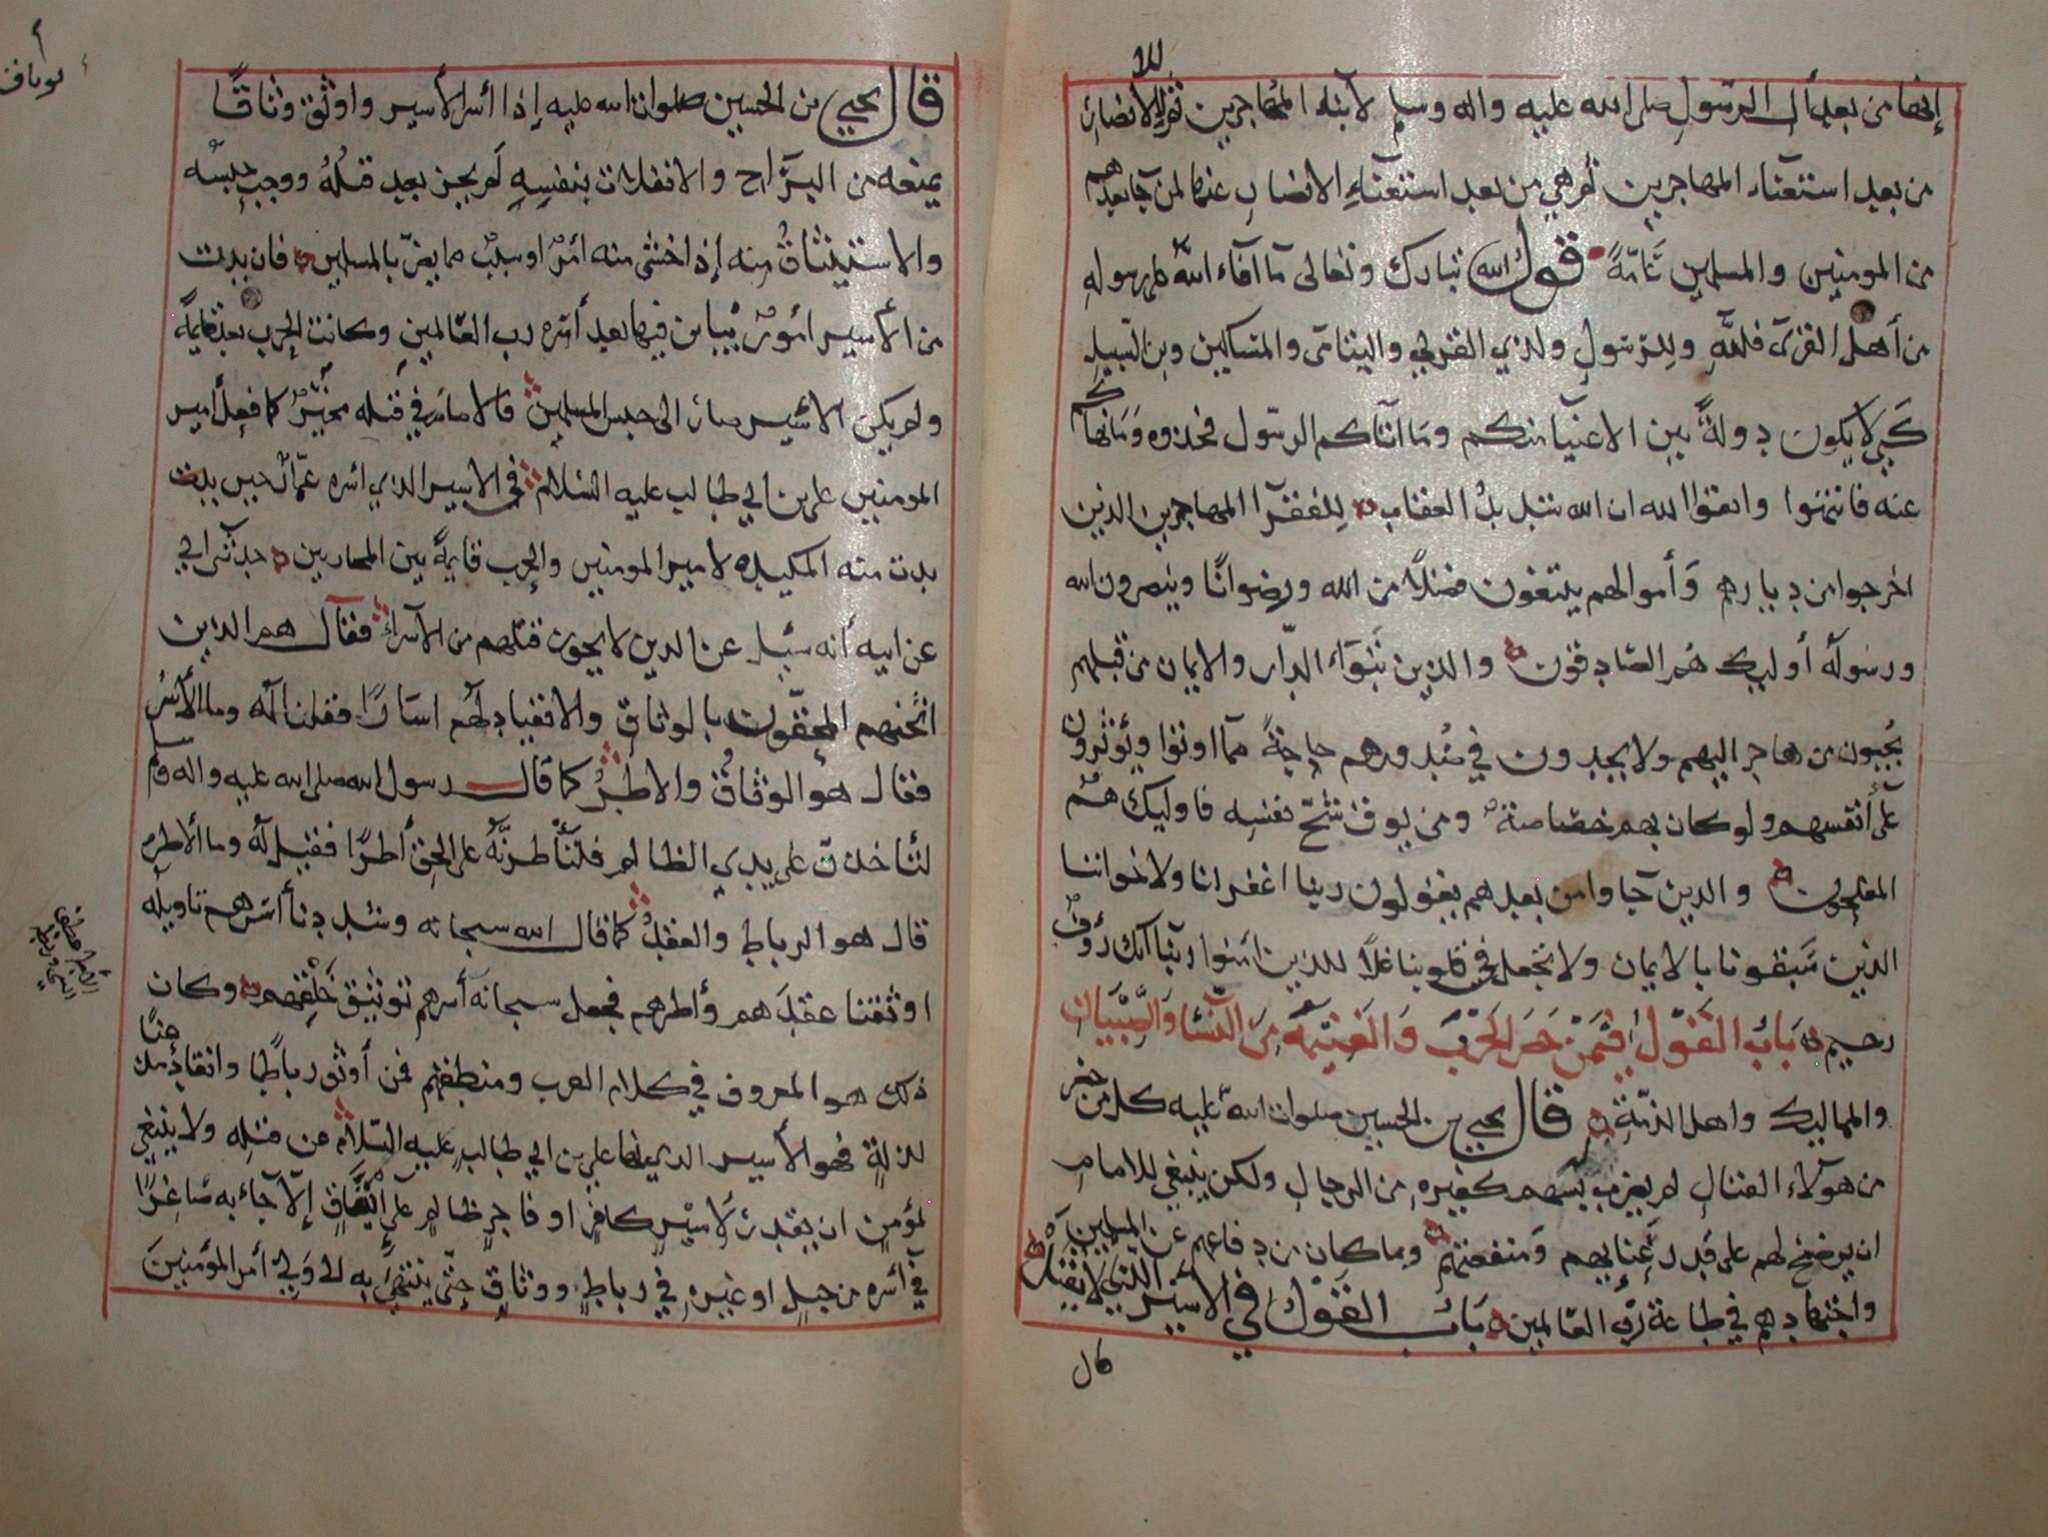 لله
إنها من بعد آل الرسول صلى الله عليه واله وسلم لابنا المهاجرين ثم للانصار
من بعد استغنآء المهاجرين ثم هي من بعد استغنآء الانصار عنها لمن جا بعدهم
من المومنين والمسلمين ثامّة قول الله تبارك وتعالى مآ أفاء الله على رسوله
من أهل القرى فلله وللرّسول ولذي القربى واليتامى والمساكين وبن السبيل
كي لا يكون دولة بين الاغنيآ منكم وما اتاكم الرسول فخذوه وما نهاكم
عنه فانتهوا واتقوا الله ان الله شديد العقاب للفقرا المهاجرين الذين
اخرجوا من ديارهم وأموالهم يبتغون فضلاً من الله ورضوانًا وينصرون الله
ورسوله أوليك هم الصادقون والذين تبوّاء الدّار والايمان من قبلهم
يحبون من هاجر اليهم ولا يجدون في صدورهم حاجة مما اوتوا ويؤثرون
على أنفسهم ولو كان بهم خصاصة ومن يوق شح نفسه فاوليك هم
المفلحون والذين جآوا من بعدهم يقولون ربنا اغفر لنا ولاخواننا
الذين سبقونا بالايمان ولا تجعل في قلوبنا غلاً للذين امنوا ربنا انك رؤوف
رحيم بَابُ القَوْل فيمَنْ حَضَر الحَرْبَ وَالغَنيمَة مِنَ النّسَا وَالصّبيَان
والمماليك واهل الذمّة قال يحيى بن الحسين صلوات الله عليه كل من حضر
من هولآء القتال لم يضرب بسهم كغيره من الرجال ولكن ينبغي للامام
ان يرضخ لهم على قدر عنايهم ومنفعتهم وبما كان من دفاعهم عن المسلمين
واجتهادهم في طاعة رب العالمين بَابُ القول في الأسير الذي لا يقتل
قال
قال يحيى بن الحسين صلوات الله عليه إذا أسر الأسير واوثق وثاقًا
يمنعه من البرَاح والانفلات بنفسه لم يجز بعد قتله ووجب حبسه
والاستيثاق منه إذ اخشى منه أمرٌ او سببٌ مما يضرّ بالمسلمين فان بدت
من الأسير امورٌ يباين فيها بعد أسره رب العالمين وكانت الحرب بعد قايمةً
ولم يكن الاسير صار الى حبس المسلمين فالامام في قتله مخيّرٌ كما فعل أمير
المومنين علي بن ابي طالب عليه السلام في الاسير الذي اسره عمّار حين بدت
بدت منه المكيده لامير المومنين والحرب قايمة بين المحاربين حدثنى ابي
عن ابيه أنه سئل عن الذين لا يجوز قتلهم من الأسراء فقال هم الذين
اثخنهم المحقون بالوثاق والانقياد لهم اسارًا فقلنا له وما الأسْرُ
فقال هو الوثاقُ والاطْرُ كما قال رسول الله صلى الله عليه واله وسلم
لتأخذن على يدي الظالم فلتأطرنّه على الحق أطرًا فقيل له وما الاطره
قال هو الرباط والعقدُ كما قال الله سبحانه وشددنا أسرهم تاويله
اوثقنا عقدَهم وأطرهم فجعل سبحانه أسرهم توثيق خَلْقِهم وكان
ذلك هو المعروف في كلام العرب ومنطقهم فمن أوثق رباطًا وانقاد
للذلة فهو الأسير الذي نها علي بن ابي طالب عليه السّلام عن قتله ولا ينبغي
لمؤمن ان يقدر لاسْير كافرٍ او فاجرٍ ظالمٍ على إلاّ جاء به صَاغرًا
في أسره من حبلٍ او غيره في رباطٍ ووثاقٍ حتّى ينتهي به الى ولي أمر المؤمنينَ